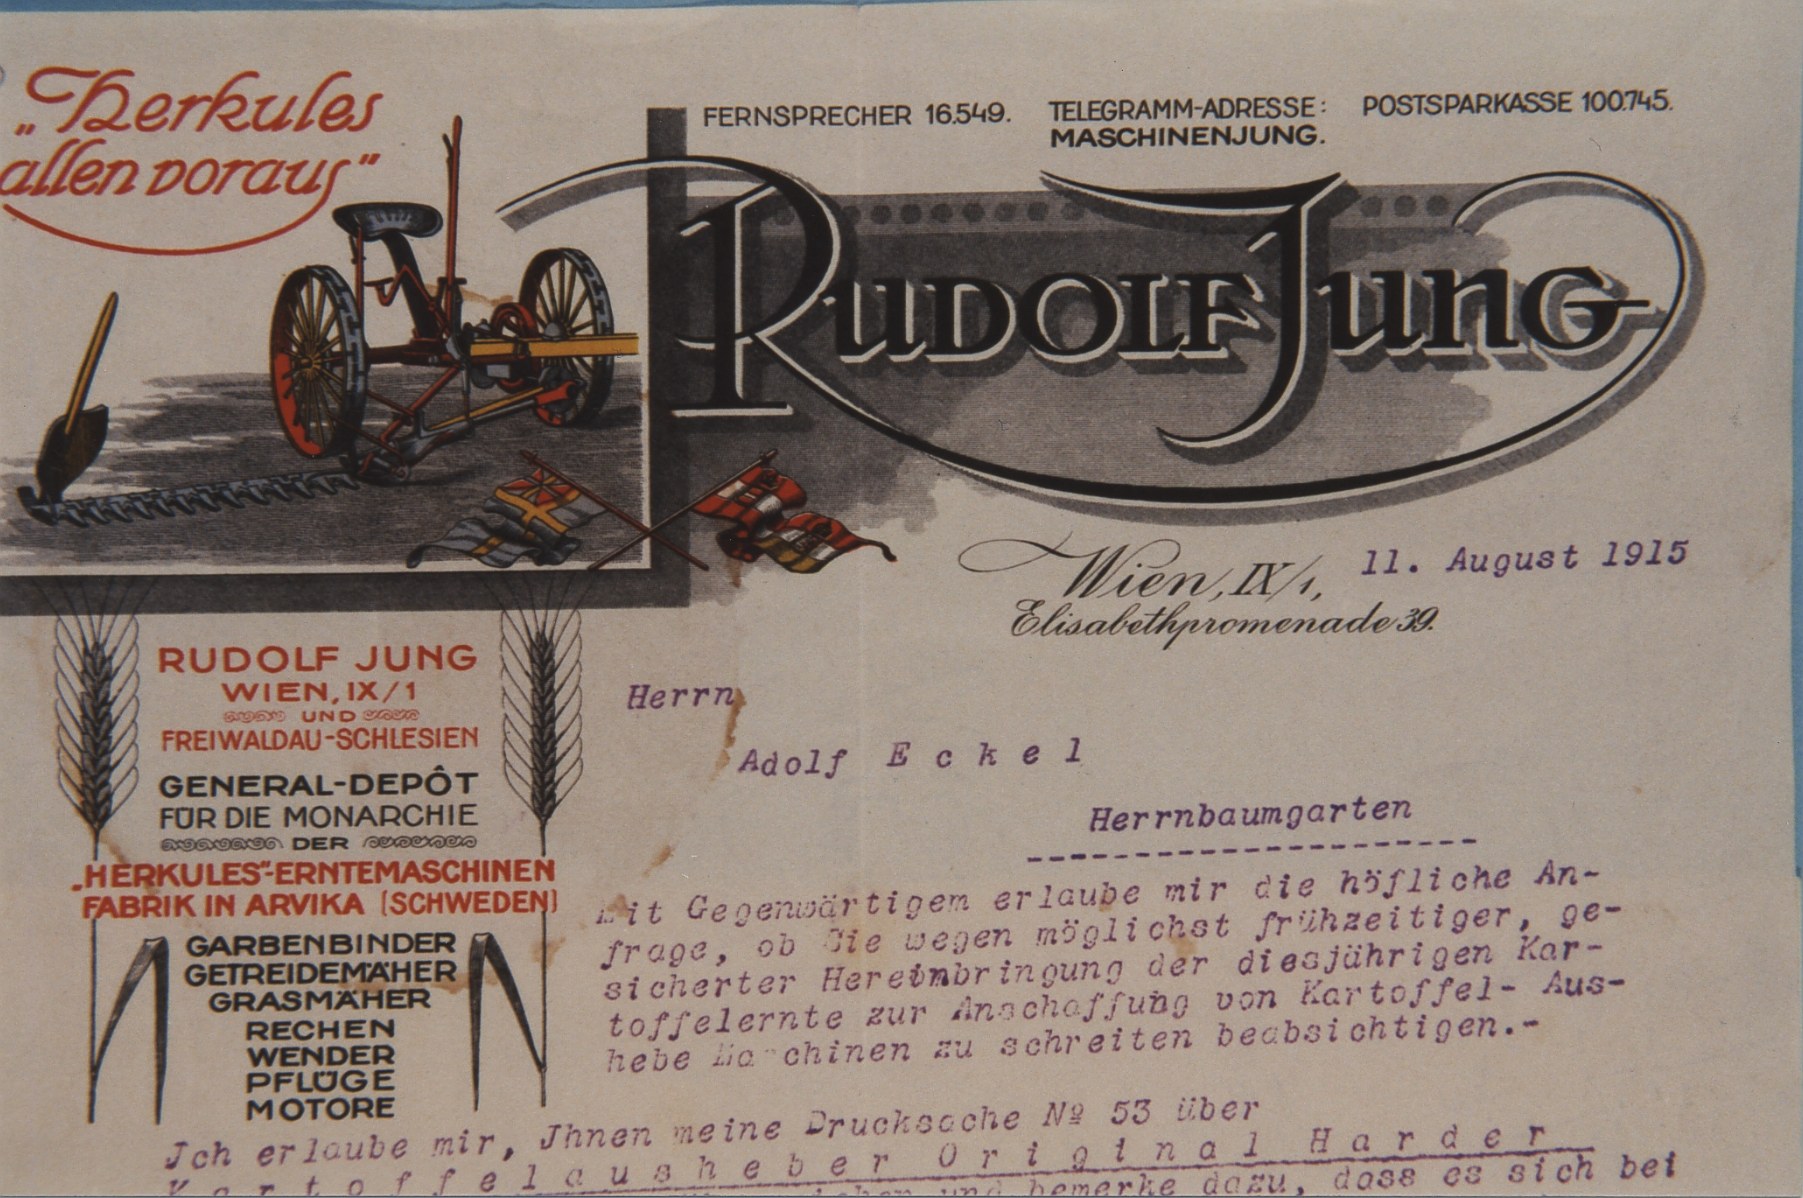 „Herkules
allen voraus"
FERNSPRECHER 16.549.
TELEGRAMM-ADRESSE:
MASCHINENJUNG.
POSTSPARKASSE 100.745.
RUDOLF JUNG
Wien, IX/1, 11. August 1915
Elisabethpromenade 39.
RUDOLF JUNG
WIEN, IX/1
UND
FREIWALDAU-SCHLESIEN
GENERAL-DEPÔT
FÜR DIE MONARCHIE
DER
„HERKULES"-ERNTEMASCHINEN
FABRIK IN ARVIKA (SCHWEDEN)
GARBENBINDER
GETREIDEMÄHER
GRASMÄHER
RECHEN
WENDER
PFLÜGE
MOTORE
Herrn
Adolf E c k e l
Herrnbaumgarten
---------------------
Mit Gegenwärtigem erlaube mir die höfliche An-
frage, ob Sie wegen möglichst frühzeitiger, ge-
sicherter Hereinbringung der diesjährigen Kar-
toffelernte zur Anschaffung von Kartoffel- Aus-
hebe Maschinen zu schreiten beabsichtigen.-
Ich erlaube mir, Jhnen meine Drucksache Nº 53 über
K a r t o f f e l a u s h e b e r O r i g i n a l H a r d e r
und bemerke dazu, dass es sich bei